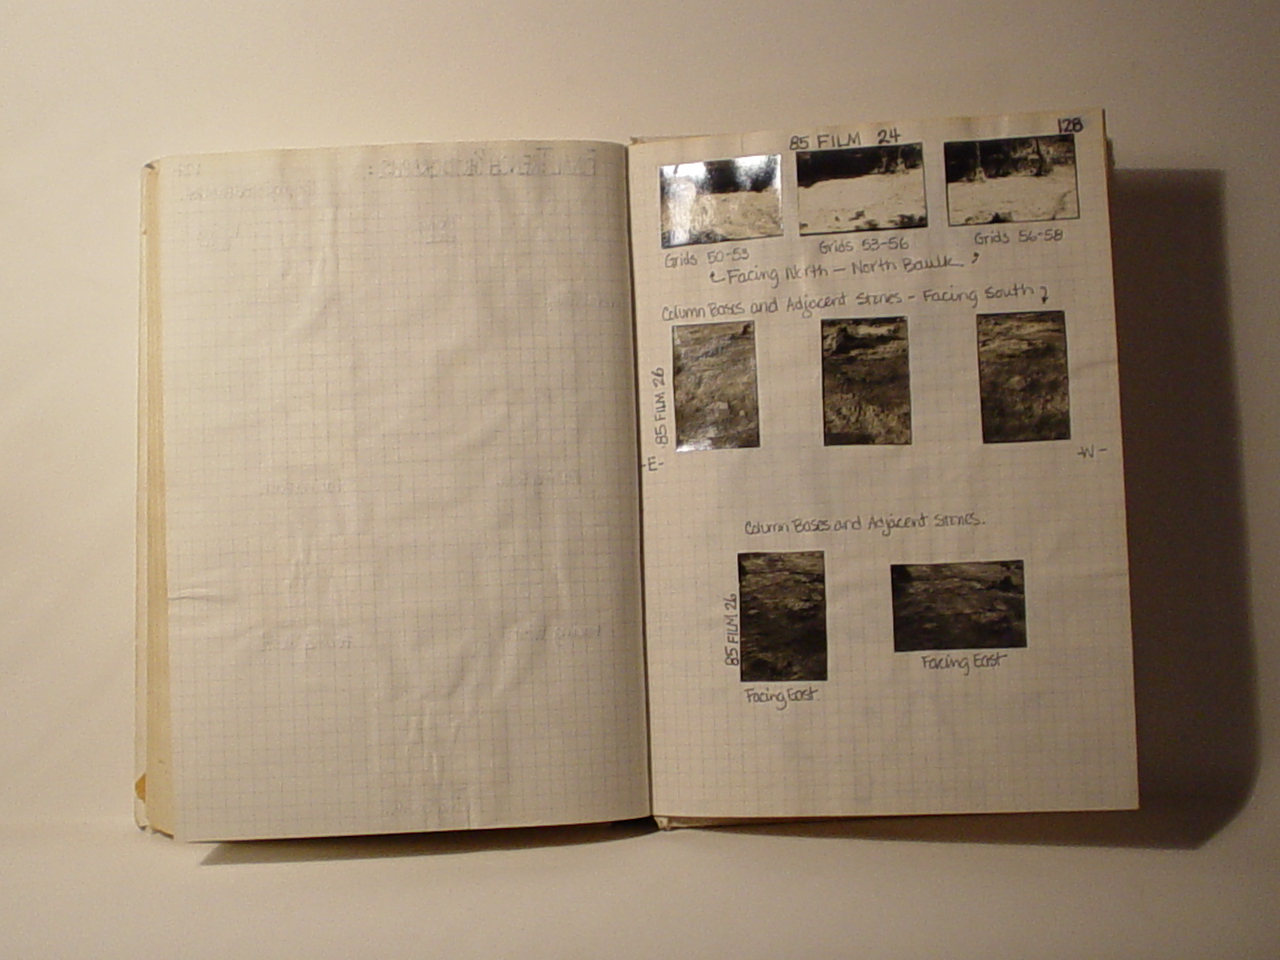 128
85 FILM 24
Grids 50-53
Grids 53-56
Grids 56-58
Facing North - North Baulk
Column Bases and Adjacent Stones - Facing South
85 FILM 26
-E-
-W-
Column Bases and Adjacent Stones.
85 FILM 26
Facing East
Facing East